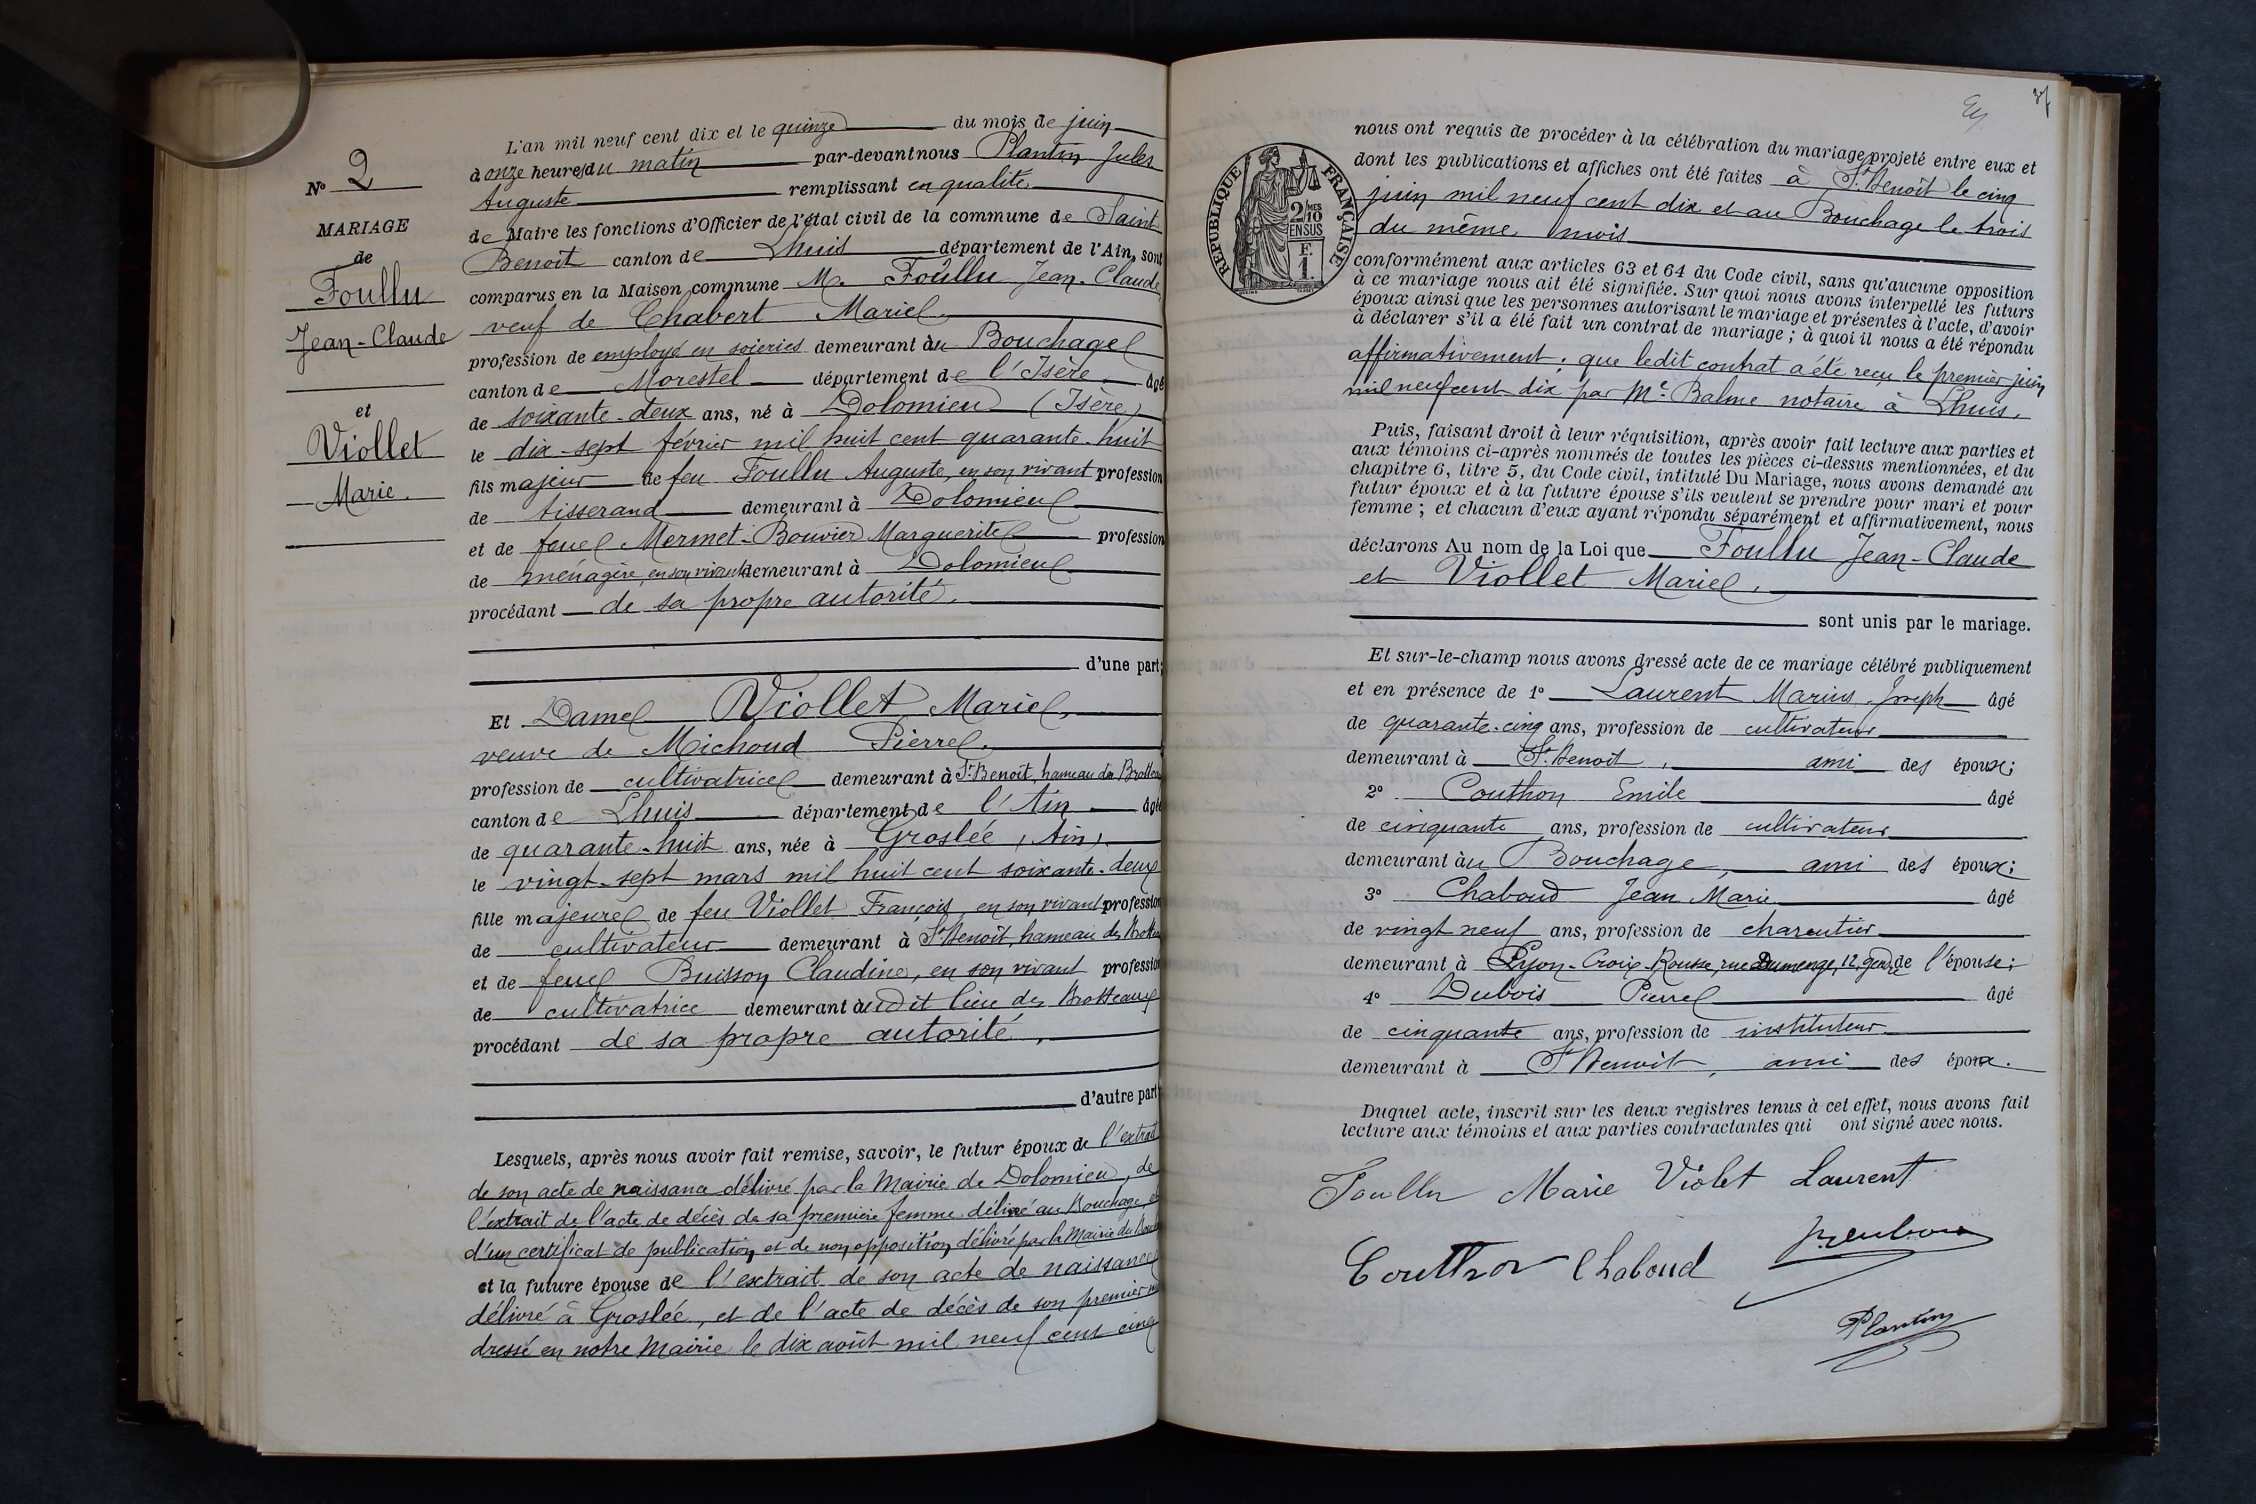 N° 2
MARIAGE
de
Foullu
Jean-Claude
et
Viollet
Marie.
L'an mil neuf cent dix et le quinze du mois de juin
à onze heures du matin par-devant nous Plantin Jules
Auguste remplissant en qualité
de Maire les fonctions d'Officier de l'état civil de la commune de Saint
Benoît canton de Lhuis département de l'Ain, sont
comparus en la Maison commune M. Foullu Jean-Claude,
veuf de Chabert Marie
profession de employé en soieries demeurant au Bouchage
canton de Morestel département de l'Isère âgé
de soixante-deux ans, né à Dolomieu (Isère)
le dix-sept février mil huit cent quarante-huit
fils majeur de feu Foullu Auguste, en son vivant profession
de tisserand demeurant à Dolomieu
et de feue Mermet-Bouvier Marguerite profession
de ménagère, en son vivant demeurant à Dolomieu
procédant de sa propre autorité,
d'une part;
Et Dame Viollet Marie,
veuve de Michoud Pierre,
profession de cultivatrice demeurant à St Benoît, hameau des Brotteaux
canton de Lhuis département de l'Ain âgée
de quarante-huit ans, née à Groslée (Ain)
le vingt-sept mars mil huit cent soixante-deux
fille majeure de feu Viollet François, en son vivant profession
de cultivateur demeurant à St Benoît, hameau des Brotteaux
et de feue Buisson Claudine, en son vivant profession
de cultivatrice demeurant audit lieu des Brotteaux
procédant de sa propre autorité,
d'autre part;
Lesquels, après nous avoir fait remise, savoir, le futur époux de l'extrait
de son acte de naissance délivré par la Mairie de Dolomieu, de
l'extrait de l'acte de décès de sa première femme délivré au Bouchage, et
d'un certificat de publication et de non opposition délivré par la Mairie du
et la future épouse de l'extrait de son acte de naissance
délivré à Groslée, et de l'acte de décès de son premier
dressé en notre Mairie le dix août mil neuf cent cinq
RÉPUBLIQUE FRANÇAISE
2/10 MES
EN SUS
F.
1.
nous ont requis de procéder à la célébration du mariage projeté entre eux et
dont les publications et affiches ont été faites à St Benoît le cinq
juin mil neuf cent dix et au Bouchage le trois
du même mois
conformément aux articles 63 et 64 du Code civil, sans qu'aucune opposition
à ce mariage nous ait été signifiée. Sur quoi nous avons interpellé les futurs
époux ainsi que les personnes autorisant le mariage et présentes à l'acte, d'avoir
à déclarer s'il a été fait un contrat de mariage; à quoi il nous a été répondu
affirmativement; que ledit contrat a été reçu le premier juin
mil neuf cent dix par Me Balme notaire à Lhuis.
Puis, faisant droit à leur réquisition, après avoir fait lecture aux parties et
aux témoins ci-après nommés de toutes les pièces ci-dessus mentionnées, et du
chapitre 6, titre 5, du Code civil, intitulé Du Mariage, nous avons demandé au
futur époux et à la future épouse s'ils veulent se prendre pour mari et pour
femme; et chacun d'eux ayant répondu séparément et affirmativement, nous
déclarons Au nom de la Loi que Foullu Jean-Claude
et Viollet Marie,
sont unis par le mariage.
Et sur-le-champ nous avons dressé acte de ce mariage célébré publiquement
et en présence de 1° Laurent Marius-Joseph âgé
de quarante-cinq ans, profession de cultivateur
demeurant à St Benoît, ami des époux;
2° Couthon Emile âgé
de cinquante ans, profession de cultivateur
demeurant au Bouchage, ami des époux;
3° Chaboud Jean Marie âgé
de vingt neuf ans, profession de charcutier
demeurant à Lyon-Croix-Rousse, rue Dumenge, 12, gendre de l'épouse;
4° Dubois Pierre âgé
de cinquante ans, profession de instituteur
demeurant à St Benoît, ami des époux.
Duquel acte, inscrit sur les deux registres tenus à cet effet, nous avons fait
lecture aux témoins et aux parties contractantes qui ont signé avec nous.
Foullu Marie Violet Laurent
Couthon Chaboud
Plantin